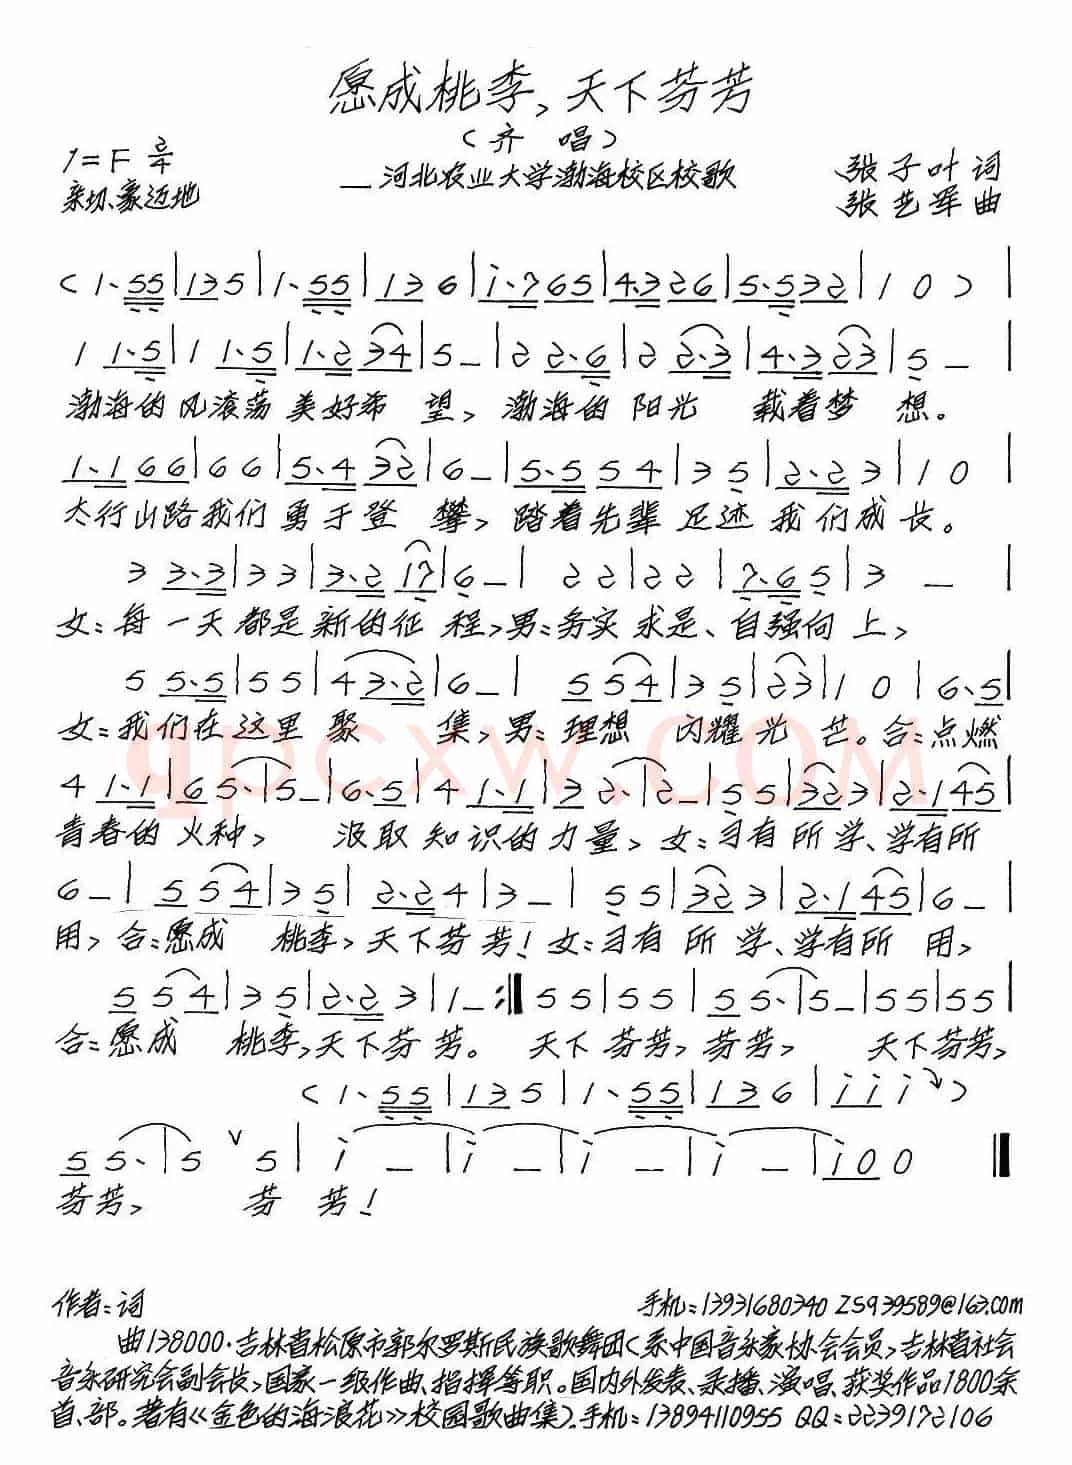 愿成桃李,天下芬芳
(齐 唱)
1=F 2/4
——河北农业大学渤海校区校歌
张子叶 词
亲切、豪迈地
张艺军 曲
(1·55|135|1·55|136|i·765|4·326|5·532|10)|
1 1·5|1 1·5|1·234|5–|2 2·6|2 2·3|4·323|5–|
渤海的风滚荡美好希望,渤海的阳光 载着梦想。
1·166|66|5·432|6–|5·554|35|2·23|10|
太行山路我们勇于登攀,踏着先辈足迹我们成长。
3 3·3|33|3·217|6–|22|22|7·65|3–|
女:每一天都是新的征程,男:务实求是、自强向上,
5 5·5|55|43·2|6–|554|35|23|10|6·5|
女:我们在这里聚集,男:理想闪耀光芒。合:点燃
4 1·1|65·|5–|6·5|4 1·1|32·|2–|55|323|2·145|
青春的火种, 汲取知识的力量,女:习有所学、学有所
6–|554|35|2·24|3–|55|323|2·145|6–|
用,合:愿成 桃李,天下芬芳!女:习有所学、学有所用,
554|35|2·23|1–:‖55|55|55·|5–|55|55|
合:愿成 桃李,天下芬芳。 天下芬芳,芬芳, 天下芬芳,
(1·55|135|1·55|136|iii)
55·|5 ∨ 5|i–|i–|i–|i–|i00‖
芬芳, 芬芳!
qpcxw.COM
作者:词 手机:13931680340 ZS939589@163.com
曲138000·吉林省松原市郭尔罗斯民族歌舞团(系中国音乐家协会会员,吉林省社会
音乐研究会副会长,国家一级作曲、指挥等职。国内外发表、录播、演唱、获奖作品1800余
首、部。著有《金色的海浪花》校园歌曲集).手机:13894110955 QQ:2239172106